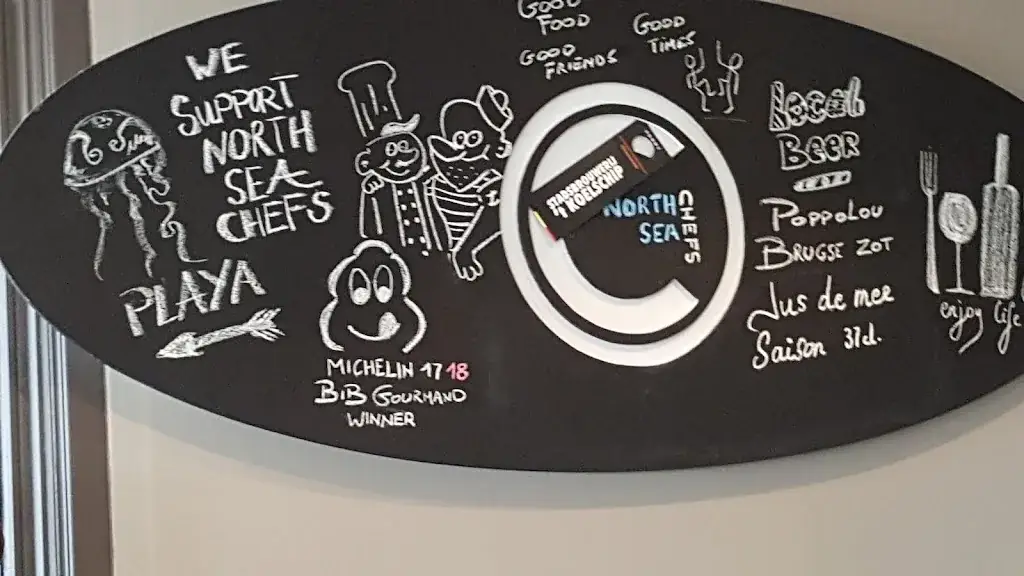 WE
SUPPORT
NORTH
SEA
CHEFS
PLAYA
MICHELIN 17 18
BIB GOURMAND
WINNER
GOOD
FOOD
GOOD
FRIENDS
GOOD
TIMES
STADSBROUWERIJ
'T KOELSCHIP
NORTH
SEA
CHEFS
Local
BEER
POPPOLOU
BRUGSE ZOT
Jus de mer
Saison 37cl.
enjoy life